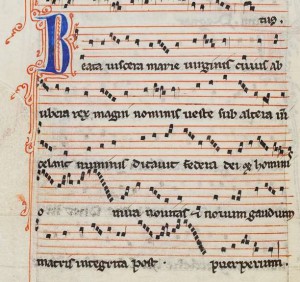 tus.
Beata viscera marie virginis cuius ab
ubera rex magni nominis veste sub altera
celavit numinis dicavit federa dei & homini
o mira novitas & novum gaudium
matris integrita post puerperium